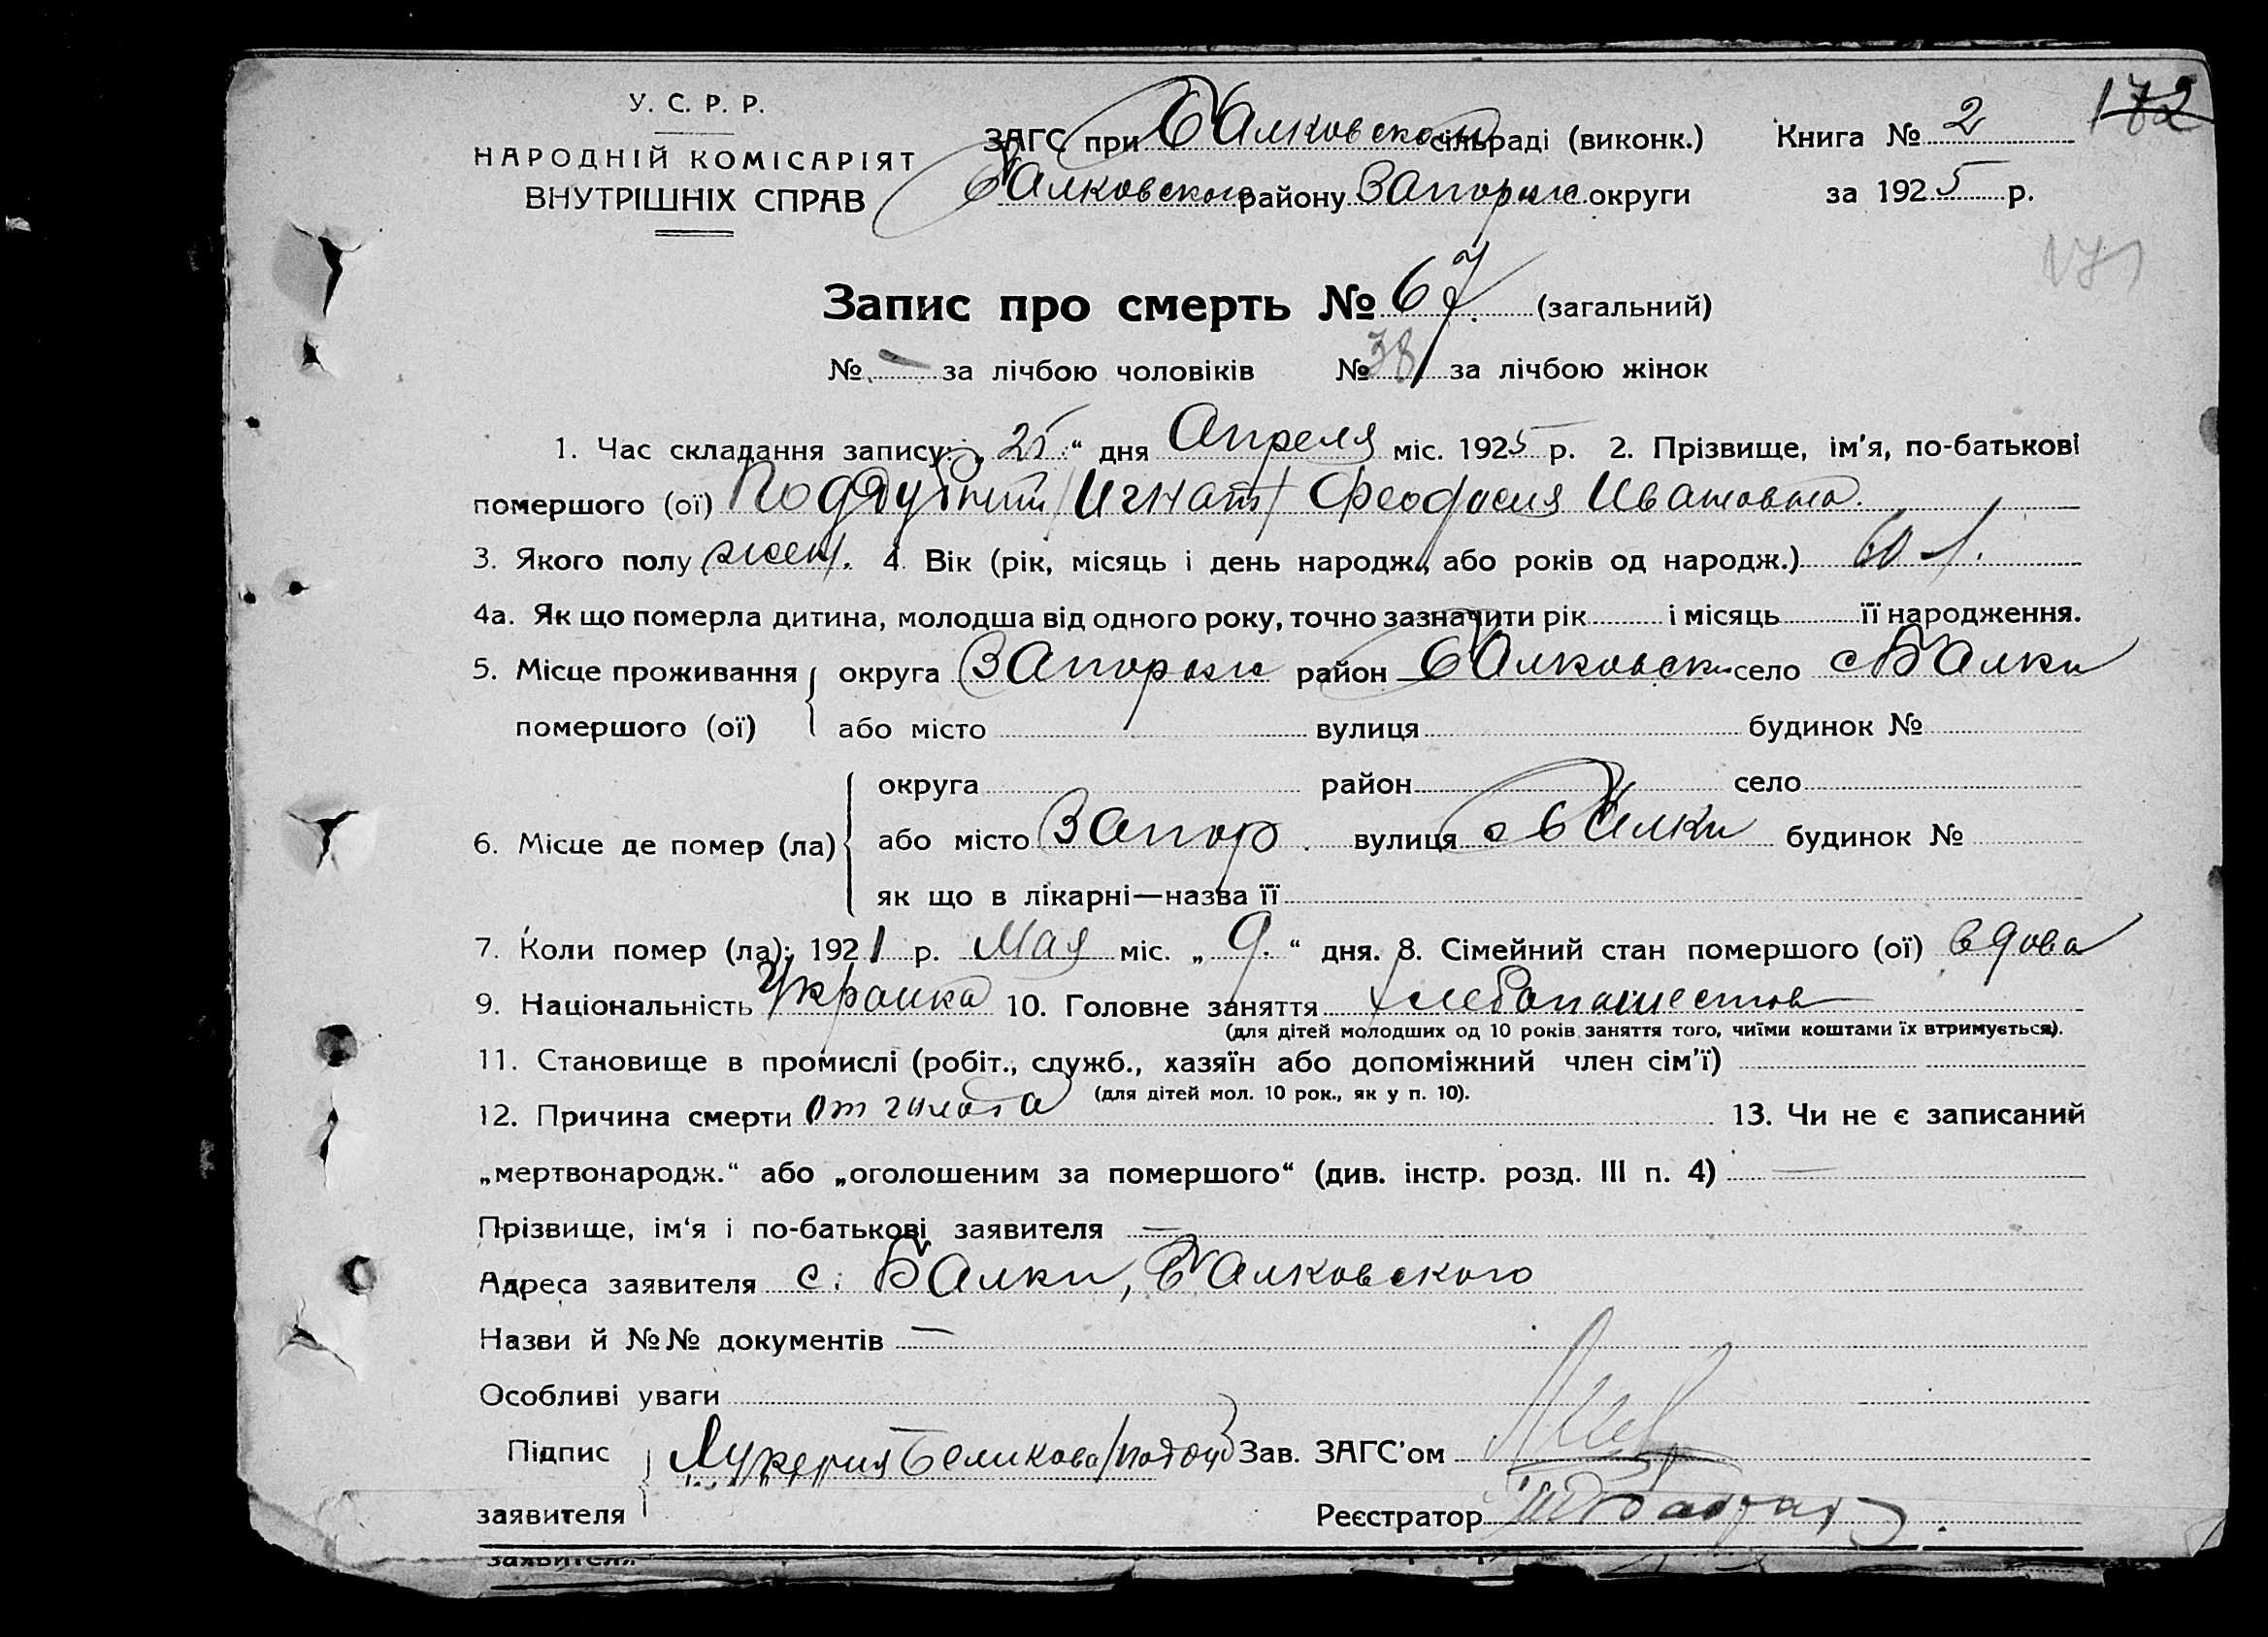 У. С. Р. Р.
НАРОДНІЙ КОМІСАРІЯТ
ВНУТРІШНІХ СПРАВ
ЗАГС при Балковском сільраді (виконк.) Книга № 2 172
Балковского району Запорж округи за 1925 р.
171
Запис про смерть № 67. (загальний)
№ — за лічбою чоловіків № 38 за лічбою жінок
1. Час складання запису: „25“ дня Апреля міс. 1925 р. 2. Прізвище, ім'я, по-батькові
помершого (ої) Поддубний /Игнат/ Феодосия Ивановна.
3. Якого полу жен. 4. Вік (рік, місяць і день народж., або років од народж.) 60 л.
4а. Як що померла дитина, молодша від одного року, точно зазначити рік і місяць її народження.
5. Місце проживання округа Запорж район Балковск село с Балки
помершого (ої) або місто вулиця будинок №
округа район село
6. Місце де помер (ла) або місто Запор. вулиця с Балки будинок №
як що в лікарні—назва її
7. Коли помер (ла): 1921 р. Мая міс. „9.“ дня. 8. Сімейний стан помершого (ої) вдова
9. Національність Украинка 10. Головне заняття хлебопашеством
(для дітей молодших од 10 років заняття того, чиїми коштами їх втримується).
11. Становище в промислі (робіт., служб., хазяїн або допоміжний член сім'ї)
(для дітей мол. 10 рок., як у п. 10).
12. Причина смерти от голода 13. Чи не є записаний
„мертвонародж.“ або „оголошеним за помершого“ (див. інстр. розд. III п. 4) —
Прізвище, ім'я і по-батькові заявителя —
Адреса заявителя с. Балки, Балковского
Назви й №№ документів —
Особливі уваги
Підпис Лукерия Беликова Зав. ЗАГС'ом
заявителя Реєстратор
заявителя